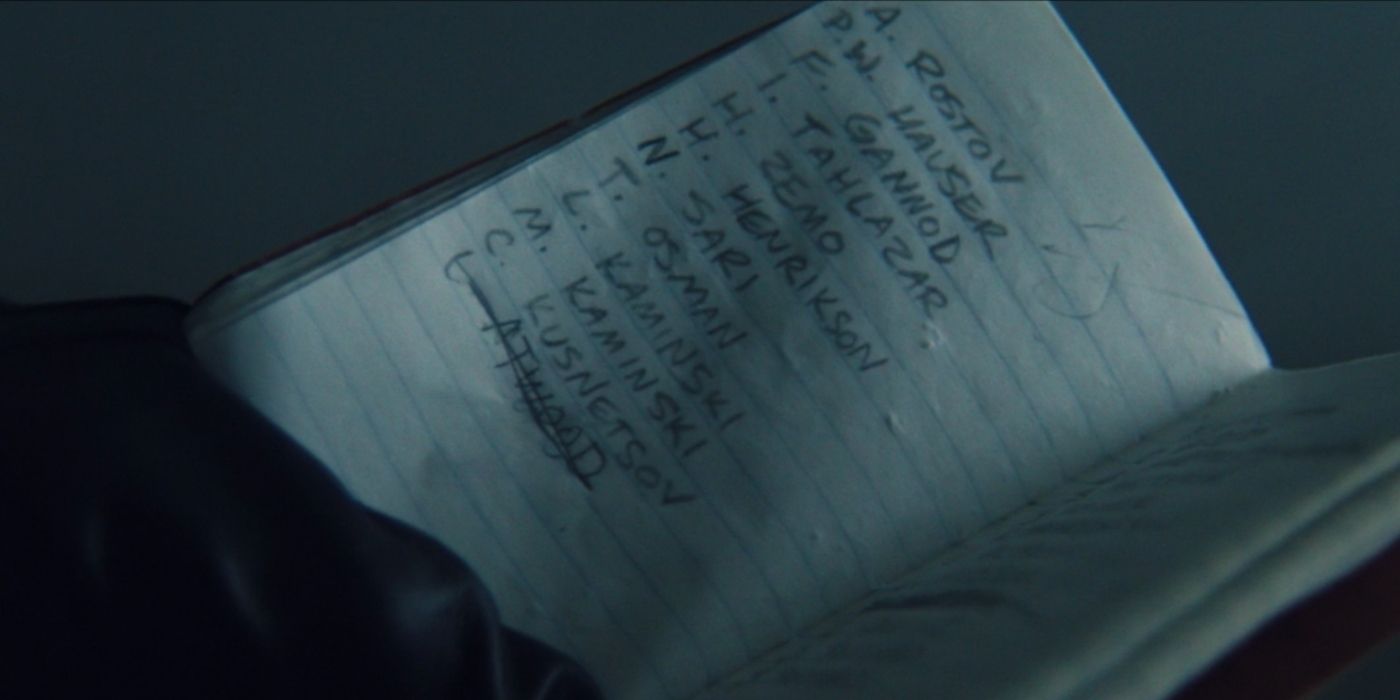 A. ROSTOV
P.W. HAUSER
F. GANNOD
I. TAHLAZAR
H. ZEMO
H. HENRIKSON
N. SARI
T. OSMAN
L. KAMINSKI
M. KAMINSKI
C. KUSNETSOV
L. ATWOOD